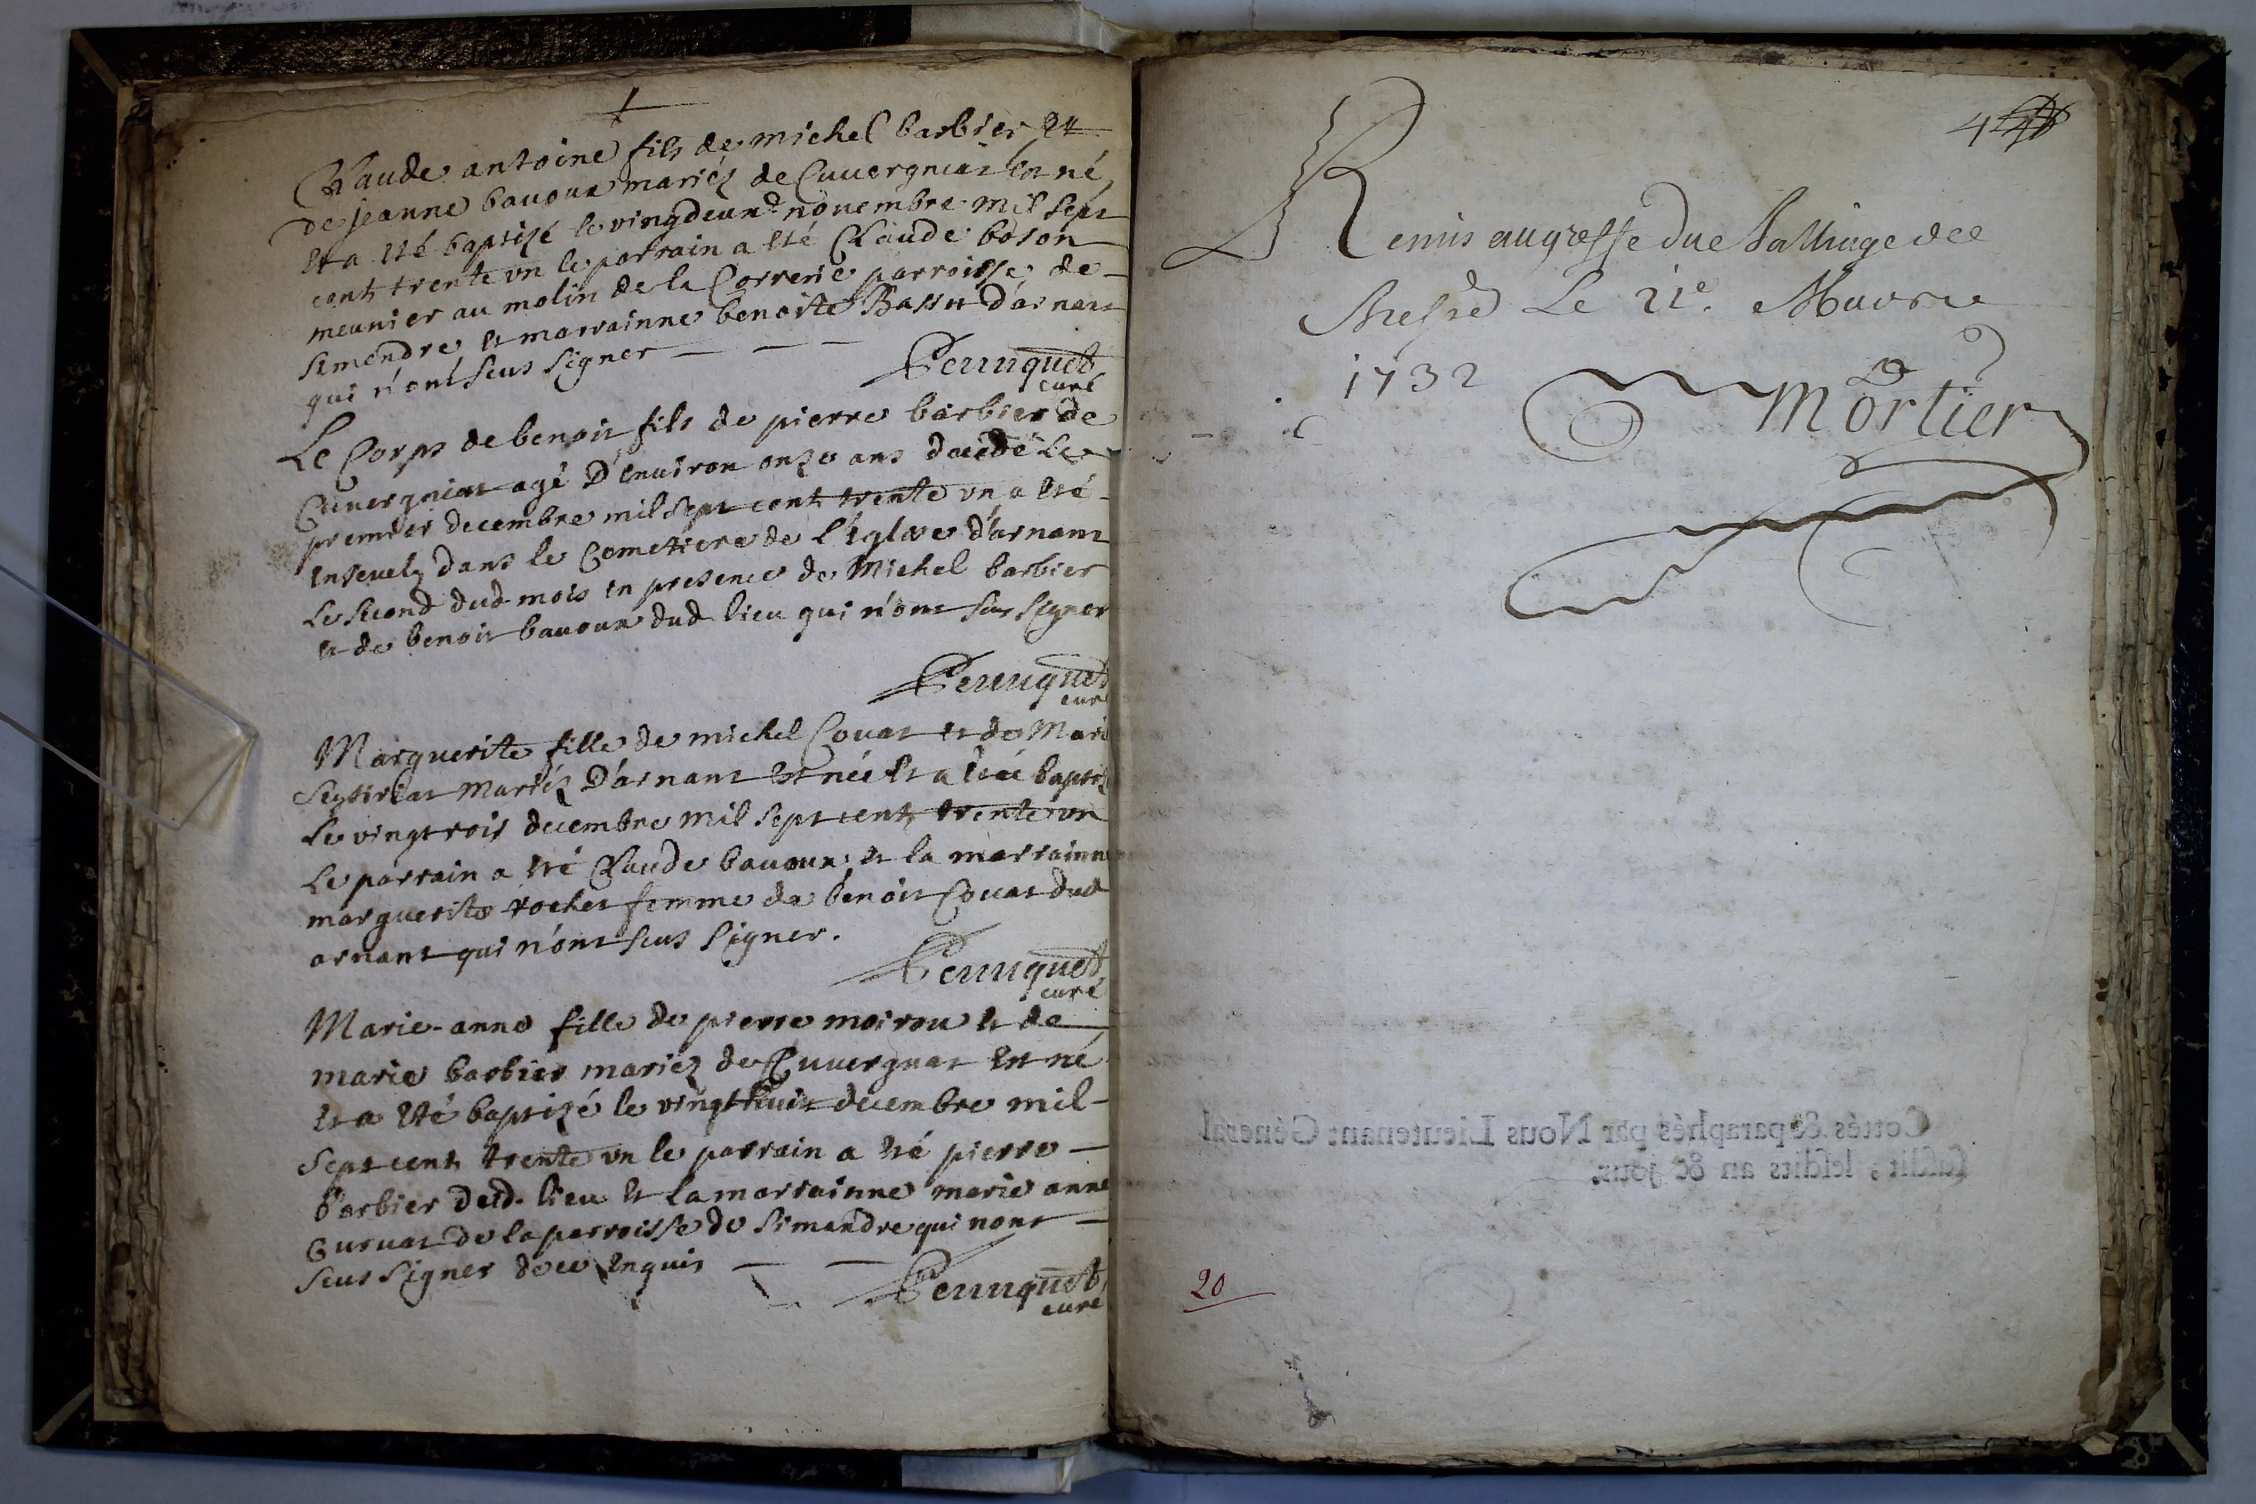 Claude antoine fils de michel barbier et
de jeanne bauoux mariéz de Cuuergniat est né
et a été baptizé le vingdeux nouembre mil sept
cent trente vn le parrain a été Claude boson
meunier au molin de la Correrie parroisse de
simendre et marrainne benoite Bassit d'arnant
qui n'ont sçus signer
Perruquet
curé
Le Corps de benoit fils de pierre barbier de
Cuuergniat agé D'enuiron onze ans décidé Le
premier decembre mil sept cent trente vn a été
enseuely dans le Cemetiere de l'églize d'arnant
Le second dud mois en presence de Michel barbier
et de benoit bauoux dud lieu qui n'ont sçus signer
Perruquet
curé
Marguerite fille de michel Couat et de Marie
mariéz D'arnant est née et a étée baptiz
Le vingtrois decembre mil sept cent trente vn
Le parrain a été Claude bauoux et la marrainne
marguerite rochet femme de benoit Couat dud
arnant qui n'ont sçus signer.
Perruquet
curé
Marie-anne fille de pierre moirou et de
marie barbier mariéz de Cuuergnat est né
et a été baptizé le vingthuit decembre mil
sept cent trente vn le parrain a été pierre
barbier dud. lieu et la marrainne marie anne
Guruat de la parroisse de simandre qui nont
sçus signer de ce enquis
Perruquet
curé
4
Remis au greffe du Balliage de
Bresse Le 21e. Mars
1732
Mortier
Cottés & paraphés par Nous Lieutenant Général
susdit, lesdits an & jour.
20